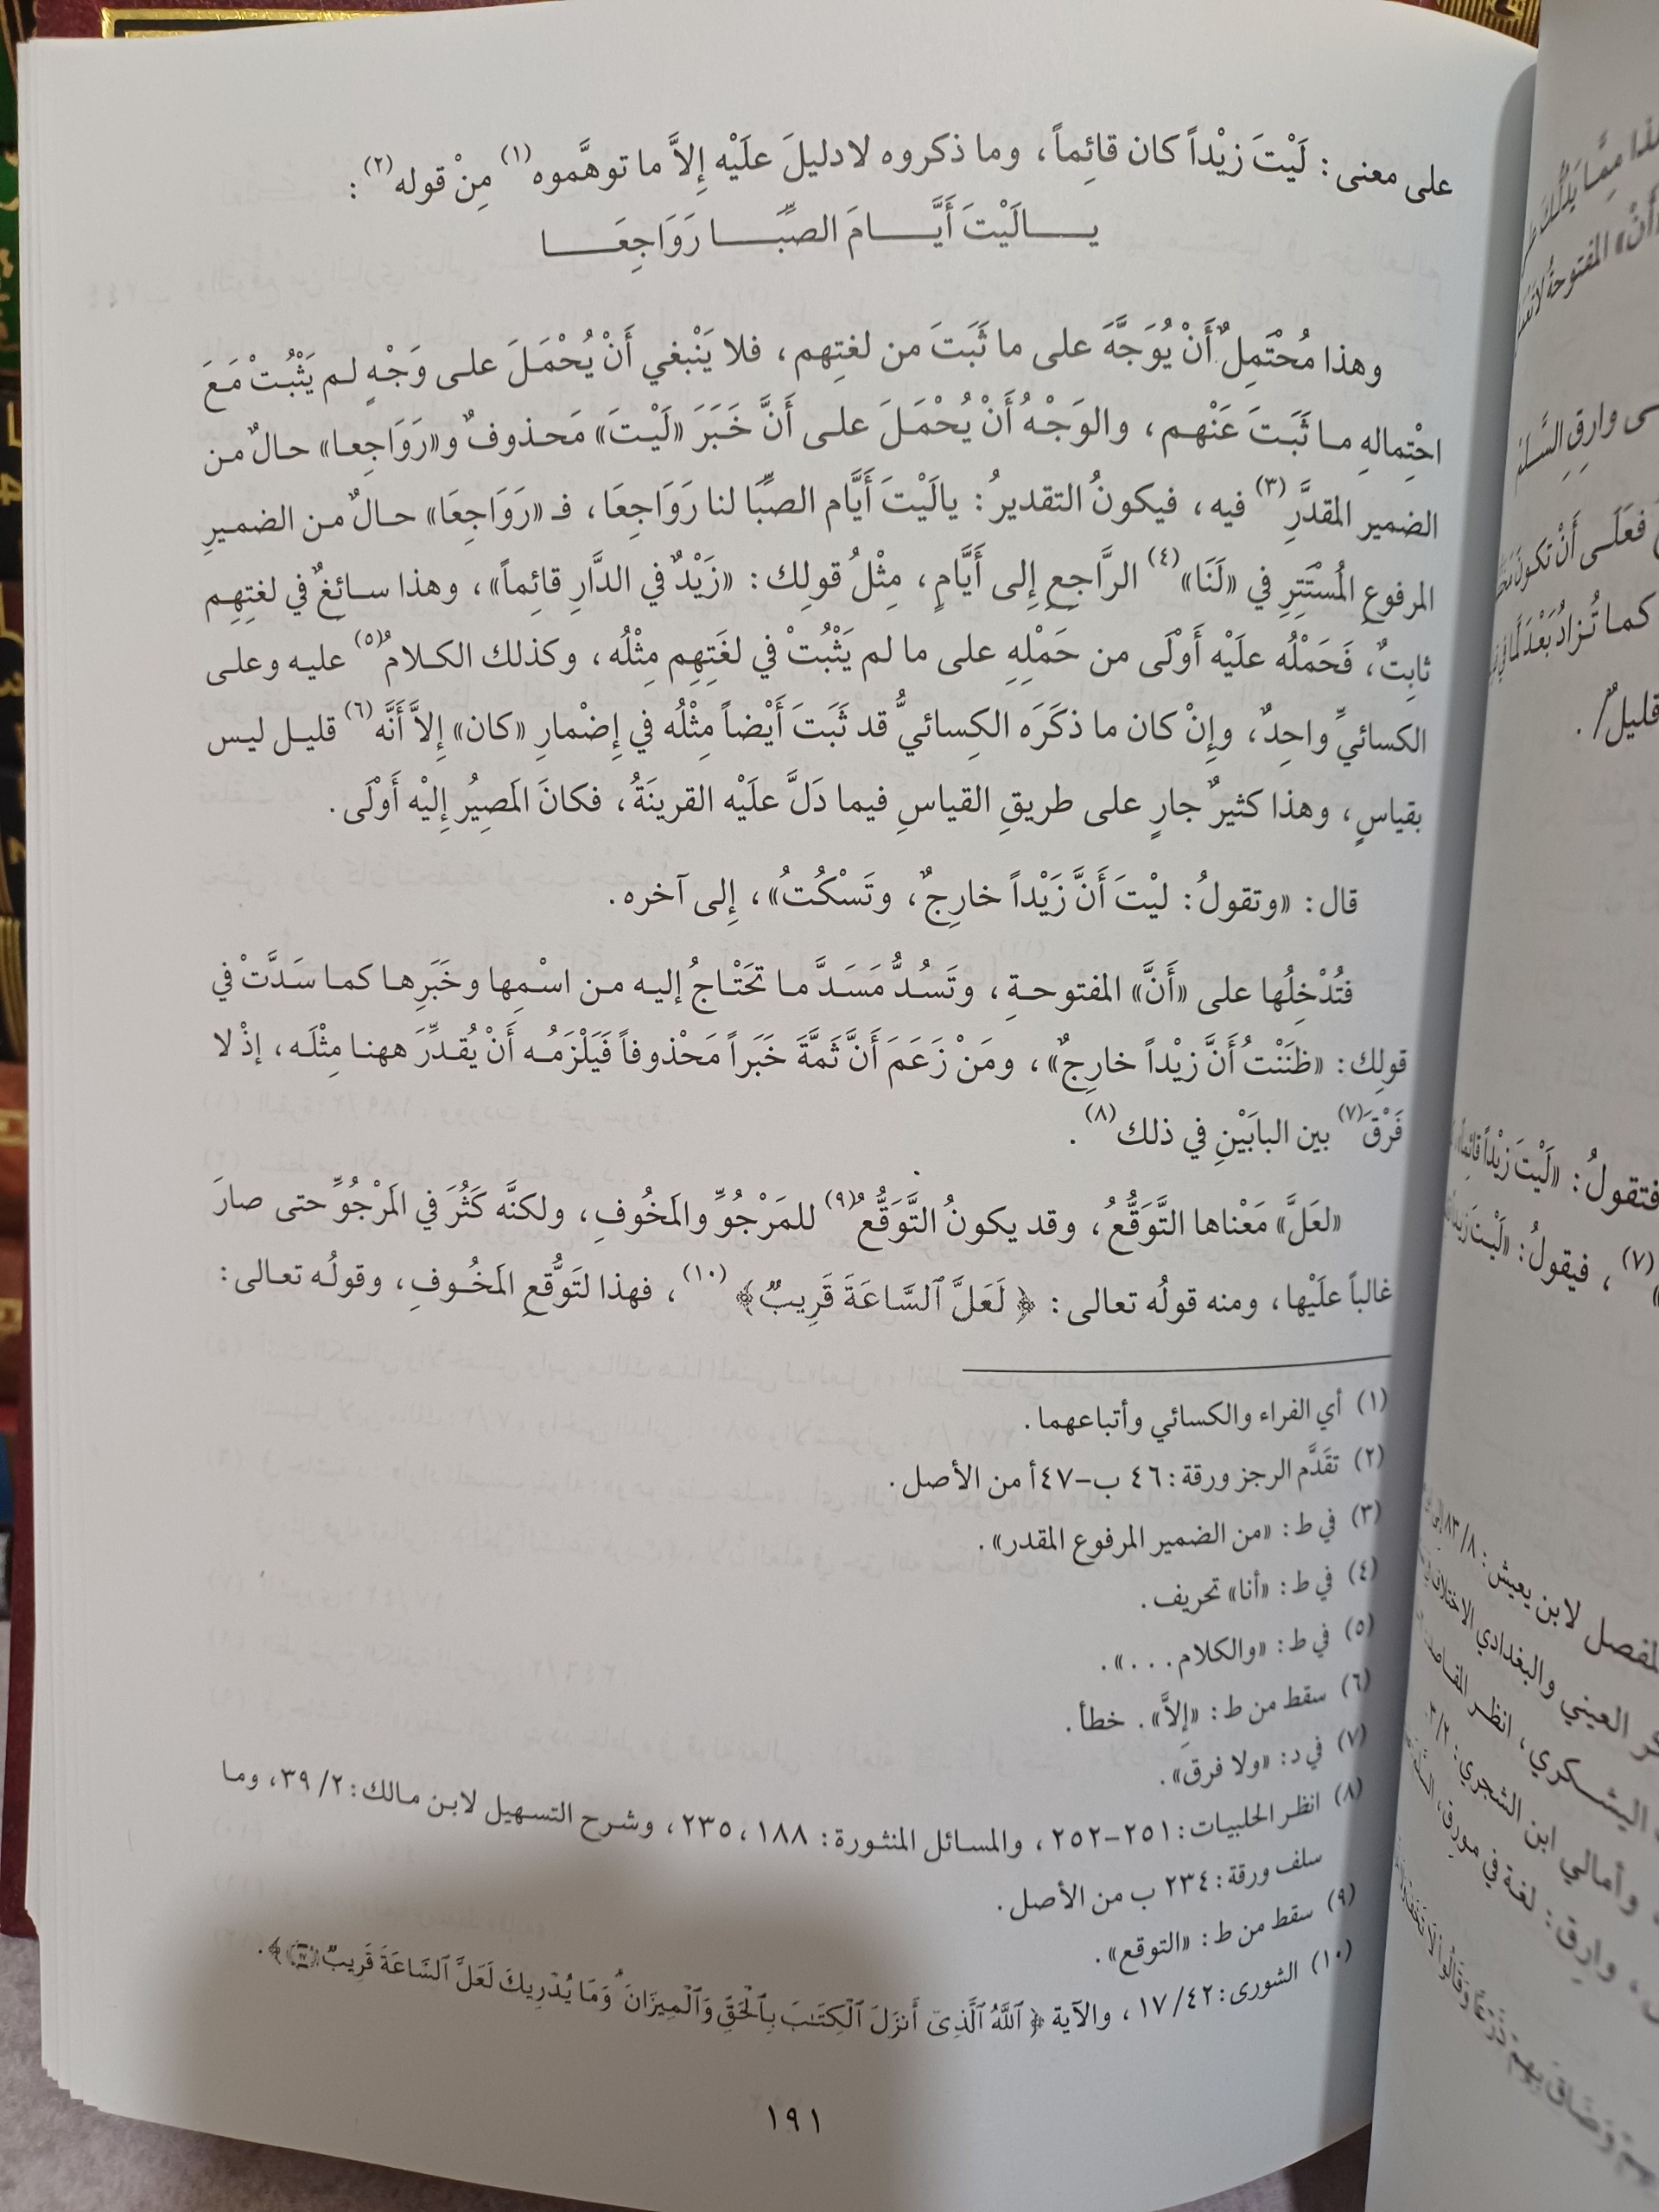 على معنى: لَيْتَ زيْداً كان قائِماً، وما ذكروه لا دليلَ علَيْه إِلاَّ ما توهَّموه(١) مِنْ قوله(٢):
يـالَيْتَ أَيَّـامَ الصِّبَـا رَوَاجِعَـا
وهذا مُحْتَمِلٌ أَنْ يُوَجَّهَ على ما ثَبَتَ من لغتِهم، فلا يَنْبغي أَنْ يُحْمَلَ على وَجْهٍ لم يَثْبُتْ مَعَ
احْتِمالهِ ما ثَبَتَ عَنْهم، والوَجْهُ أَنْ يُحْمَلَ على أَنَّ خَبَرَ «لَيْتَ» مَحذوفٌ و«رَوَاجِعا» حالٌ من
الضمير المقدَّرِ(٣) فيه، فيكونُ التقديرُ: يالَيْتَ أَيَّام الصِّبَا لنا رَوَاجِعَا، فـ «رَوَاجِعَا» حالٌ من الضميرِ
المرفوعِ المُسْتَتِرِ في «لَنَا»(٤) الرَّاجِعِ إِلى أَيَّامٍ، مِثْلُ قولِك: «زَيْدٌ في الدَّارِ قائِماً»، وهذا سائغٌ في لغتِهِم
ثابِتٌ، فَحَمْلُه علَيْه أَوْلَى من حَمْلِهِ على ما لم يَثْبُتْ في لغَتِهِم مِثْلُه، وكذلك الكلامُ(٥) عليه وعلى
الكسائيِّ واحِدٌ، وإِنْ كان ما ذكَرَه الكِسائيُّ قد ثَبَتَ أَيْضاً مِثْلُه في إِضْمارِ «كان» إِلاَّ أَنَّه(٦) قليل ليس
بقياسٍ، وهذا كثيرٌ جارٍ على طريقِ القياسِ فيما دَلَّ علَيْه القرينَةُ، فكانَ المَصِيُر إِليْه أَوْلَى.
قال: «وتقولُ: ليْتَ أَنَّ زَيْداً خارِجٌ، وتَسْكُتُ»، إِلى آخره.
فتُدْخِلُها على «أَنَّ» المفتوحةِ، وتَسُدُّ مَسَدَّ ما تَحْتَاجُ إليه من اسْمِها وخَبَرِها كما سَدَّتْ في
قولِك: «ظَنَنْتُ أَنَّ زيْداً خارِجٌ»، ومَنْ زَعَمَ أَنَّ ثَمَّةَ خَبَراً مَحْذوفاً فَيَلْزَمُه أَنْ يُقدِّرَ ههنا مِثْلَه، إذْ لا
فَرْقَ(٧) بين البابَيْنِ في ذلك(٨).
«لعَلَّ» مَعْناها التَّوَقُّعُ، وقد يكونُ التَّوَقُّعُ(٩) للمَرْجُوِّ والمَخُوفِ، ولكنَّه كَثُرَ في المَرْجُوِّ حتى صارَ
غالباً علَيْها، ومنه قولُه تعالى: ﴿لَعَلَّ ٱلسَّاعَةَ قَرِيبٌ﴾(١٠)، فهذا لتَوَقُّعِ المَخُوفِ، وقولُه تعالى:
(١) أي الفراء والكسائي وأتباعهما.
(٢) تقَدَّم الرجز ورقة: ٤٦ ب–٤٧أ من الأصل.
(٣) في ط: «من الضمير المرفوع المقدر».
(٤) في ط: «أنا» تحريف.
(٥) في ط: «والكلام...».
(٦) سقط من ط: «إِلاَّ». خطأ.
(٧) في د: «ولا فرق».
(٨) انظر الحلبيات: ٢٥١–٢٥٢، والمسائل المنثورة: ١٨٨، ٢٣٥، وشرح التسهيل لابن مالك: ٣٩/٢، وما
سلف ورقة: ٢٣٤ ب من الأصل.
(٩) سقط من ط: «التوقع».
(١٠) الشورى: ١٧/٤٢، والآية ﴿ٱللَّهُ ٱلَّذِىٓ أَنزَلَ ٱلْكِتَٰبَ بِٱلْحَقِّ وَٱلْمِيزَانَ ۗ وَمَا يُدْرِيكَ لَعَلَّ ٱلسَّاعَةَ قَرِيبٌ ١٧﴾.
١٩١
فتقولُ: «لَيْتَ زيْداً قائِماً
(٧)، فيقولُ: «لَيْتَ
كما تُزادُ بَعْدَ
قليلٌ/.
لمفصل لابن يعيش: ٨٣/٨
العيني والبغدادي
اليشكري، انظر
وأمالي ابن الشجري: ٣/٢
وارِق: لغة في مورق،